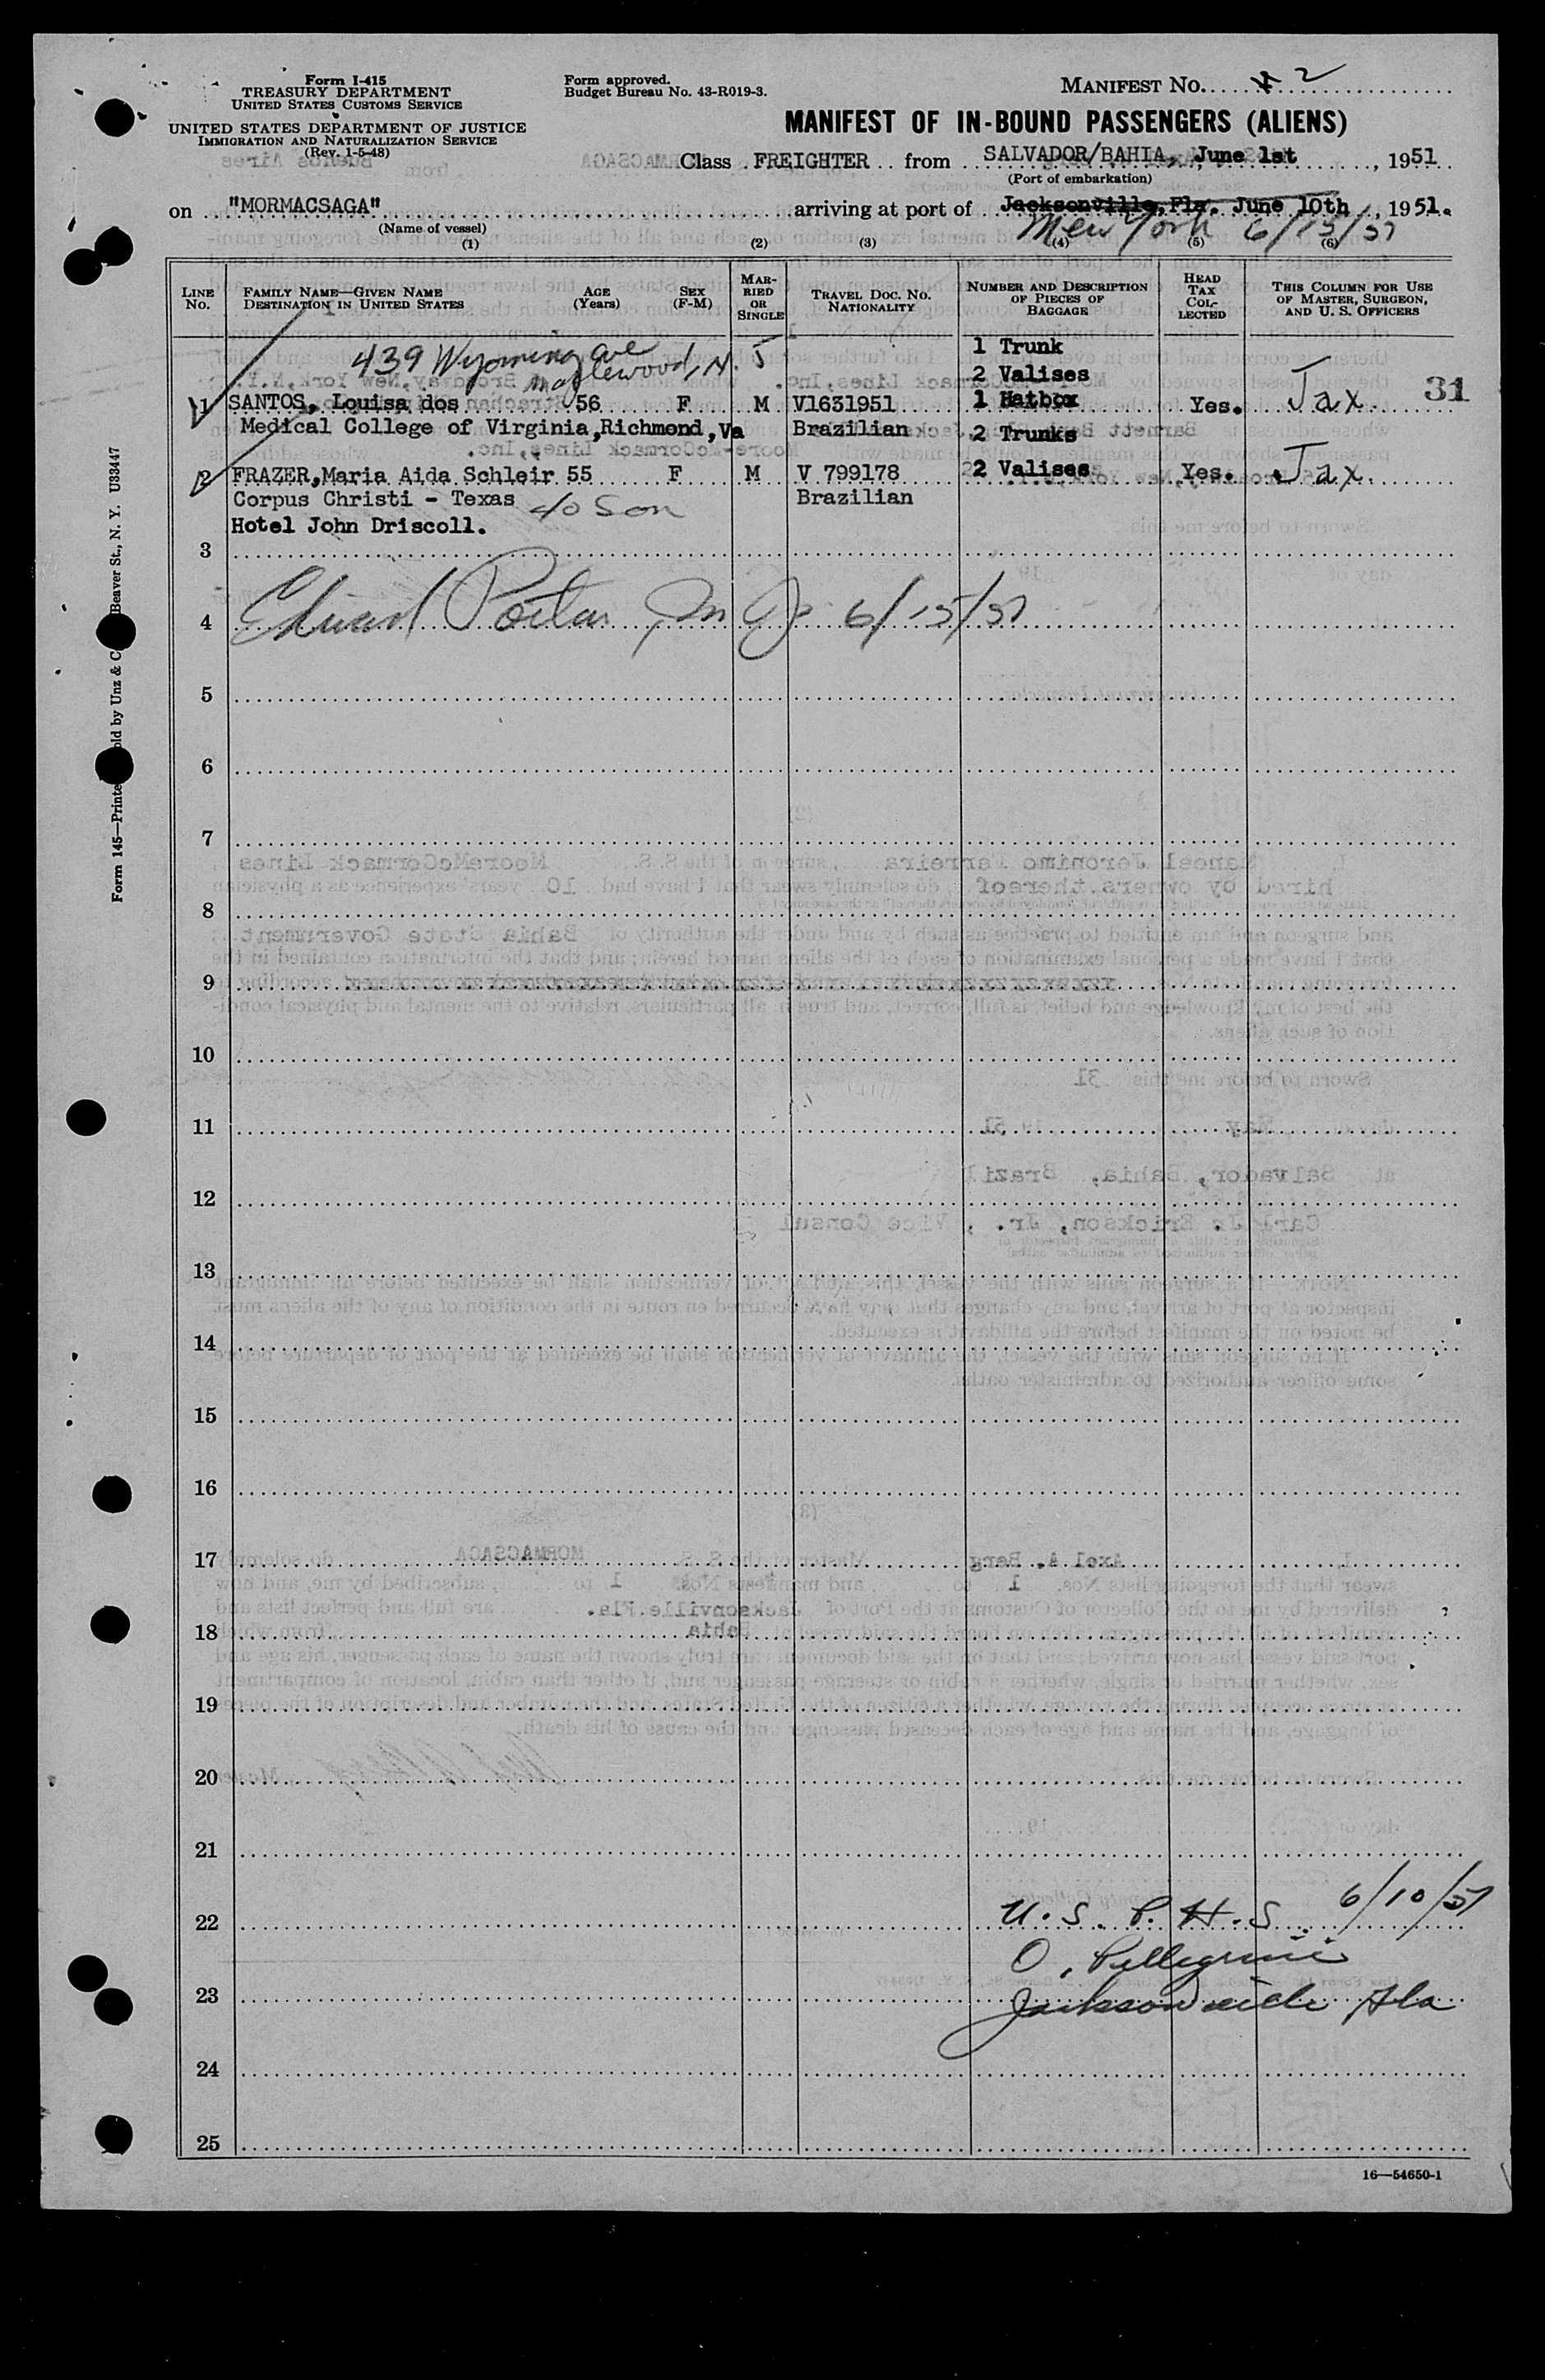 Form I-415
TREASURY DEPARTMENT
UNITED STATES CUSTOMS SERVICE
UNITED STATES DEPARTMENT OF JUSTICE
IMMIGRATION AND NATURALIZATION SERVICE
(Rev. 1-5-48)
Form approved.
Budget Bureau No. 43-R019-3.
MANIFEST No. 2
MANIFEST OF IN-BOUND PASSENGERS (ALIENS)
Class FREIGHTER from SALVADOR/BAHIA, June 1st, 1951
(Port of embarkation)
on "MORMACSAGA" arriving at port of Jacksonville, Fla. June 10th, 1951.
(Name of vessel)
New York 6/15/51
(1) (2) (3) (4) (5) (6)
LINE No.
FAMILY NAME—GIVEN NAME DESTINATION IN UNITED STATES
AGE (Years)
SEX (F-M)
MARRIED OR SINGLE
TRAVEL DOC. NO. NATIONALITY
NUMBER AND DESCRIPTION OF PIECES OF BAGGAGE
HEAD TAX COLLECTED
THIS COLUMN FOR USE OF MASTER, SURGEON, AND U. S. OFFICERS
439 Wyoming Ave
Maplewood, N. J
1 Trunk
2 Valises
1 SANTOS, Louisa dos 56 F M V1631951 1 Hatbox Yes. Jax. 31
Medical College of Virginia, Richmond, Va Brazilian 2 Trunks
2 FRAZER, Maria Aida Schleir 55 F M V 799178 2 Valises Yes. Jax.
Corpus Christi - Texas c/o Son Brazilian
Hotel John Driscoll.
3
4 6/15/51
5
6
7
8
9
10
11
12
13
14
15
16
17
18
19
20
21
22 U. S. P. H. S. 6/10/51
O. Pellegrini
23 Jacksonville Fla
24
25
16—54650-1
Beaver St., N. Y. U33447
Form 145—Printe old by Unz & C